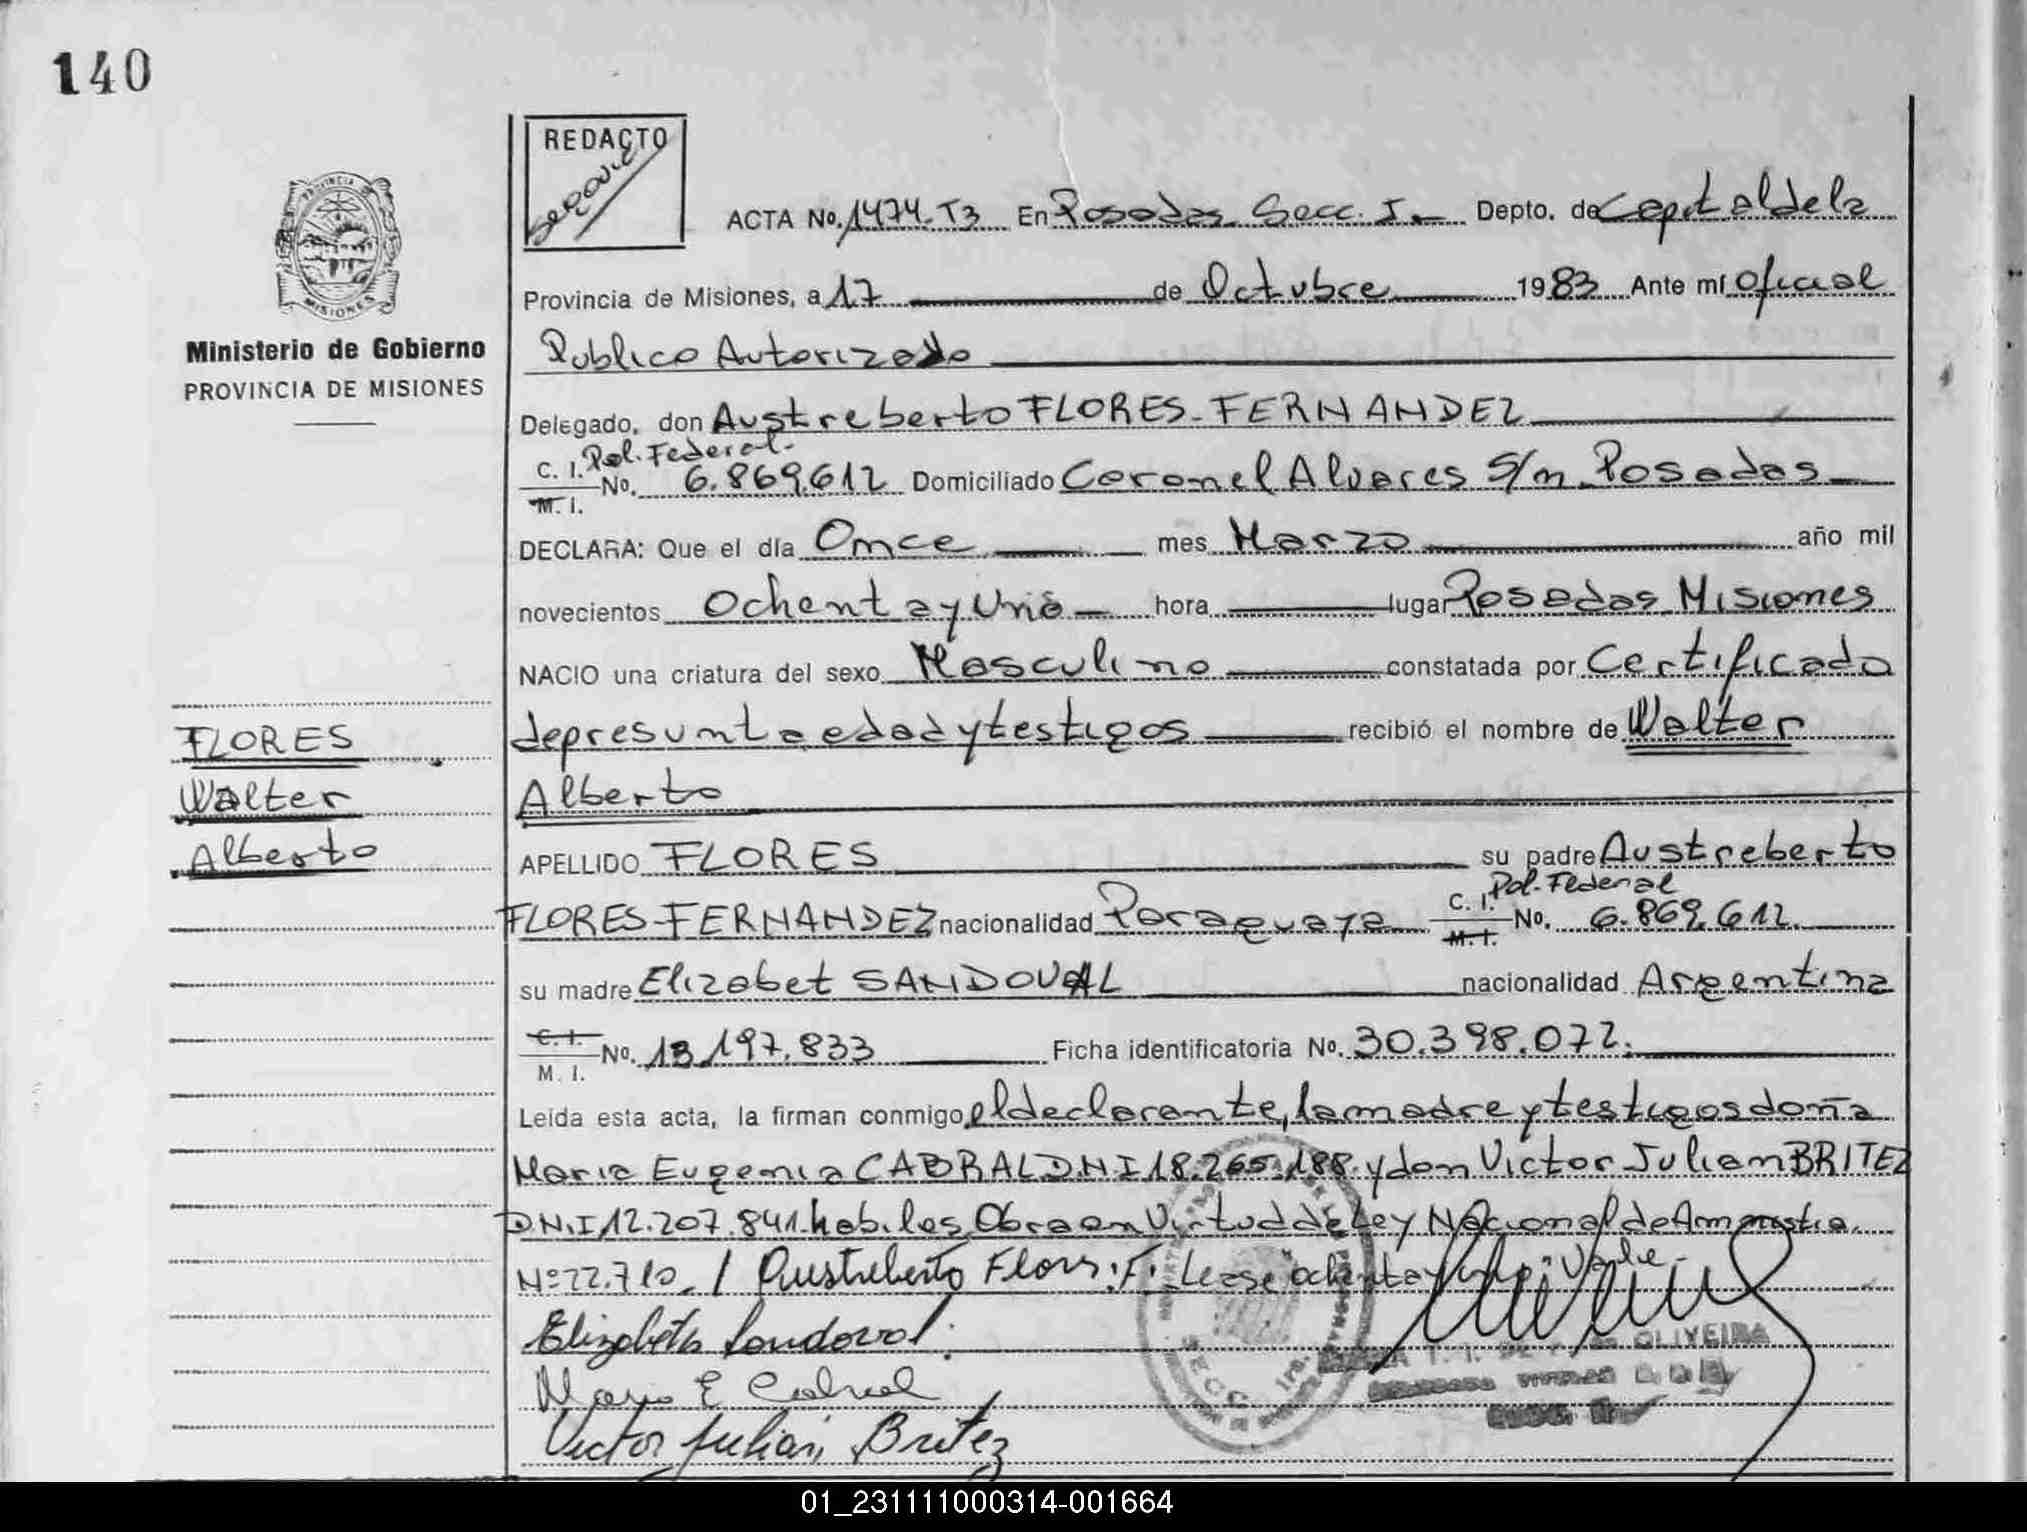 140
REDACTO
PROVINCIA
MISIONES
Ministerio de Gobierno
PROVINCIA DE MISIONES
ACTA No. 1474-T3 En Posadas Secc. I. Depto. de Capital de la
Provincia de Misiones, a 17 de Octubre 1983 Ante mí Oficial
Publico Autorizado
Delegado, don Austreberto FLORES-FERNANDEZ
C. I. Pol. Federal-
M. I. No. 6.869.612 Domiciliado Coronel Alvares S/n Posadas
DECLARA: Que el día Once mes Marzo año mil
novecientos Ochenta y Uno hora lugar Posadas Misiones
NACIO una criatura del sexo Masculino constatada por Certificado
de presunta edad y testigos recibió el nombre de Walter
Alberto
FLORES
Walter
Alberto
APELLIDO FLORES su padre Austreberto
FLORES-FERNANDEZ nacionalidad Paraguaya C. I. Pol. Federal M. I. No. 6.869.612.
su madre Elizabet SANDOVAL nacionalidad Argentina
C. I. M. I. No. 13.197.833 Ficha identificatoria No. 30.398.072.
Leída esta acta, la firman conmigo el declarante, la madre y testigos doña
Maria Eugenia CABRAL DNI 18.265.188. y don Victor Julian BRITEZ
D.N.I 12.207.841. habiles, Obra en Virtud de Ley Nacional de Amnistia.
Nº 22.710. / Austreberto Flores: F. Lease ochenta y Vale-
Elizabeth Sandoval.
OLIVEIRA
Maria E Cabral
Victor Julian Britez
01_231111000314-001664